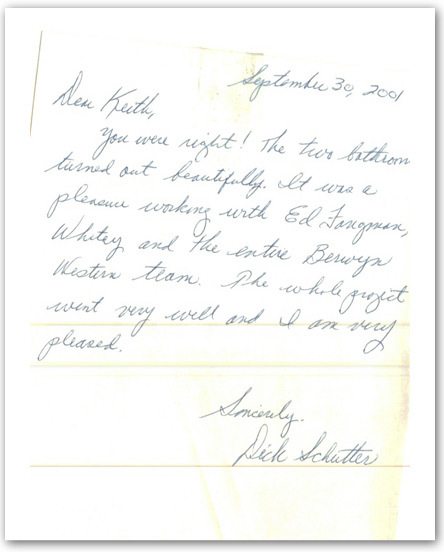 September 30, 2001
Dear Keith,
You were right! The two bathroom
turned out beautifully. It was a
pleasure working with Ed Fangman,
Whitey and the entire Berwyn
Western team. The whole project
went very well and I am very
pleased.
Sincerely,
Dick Schutter